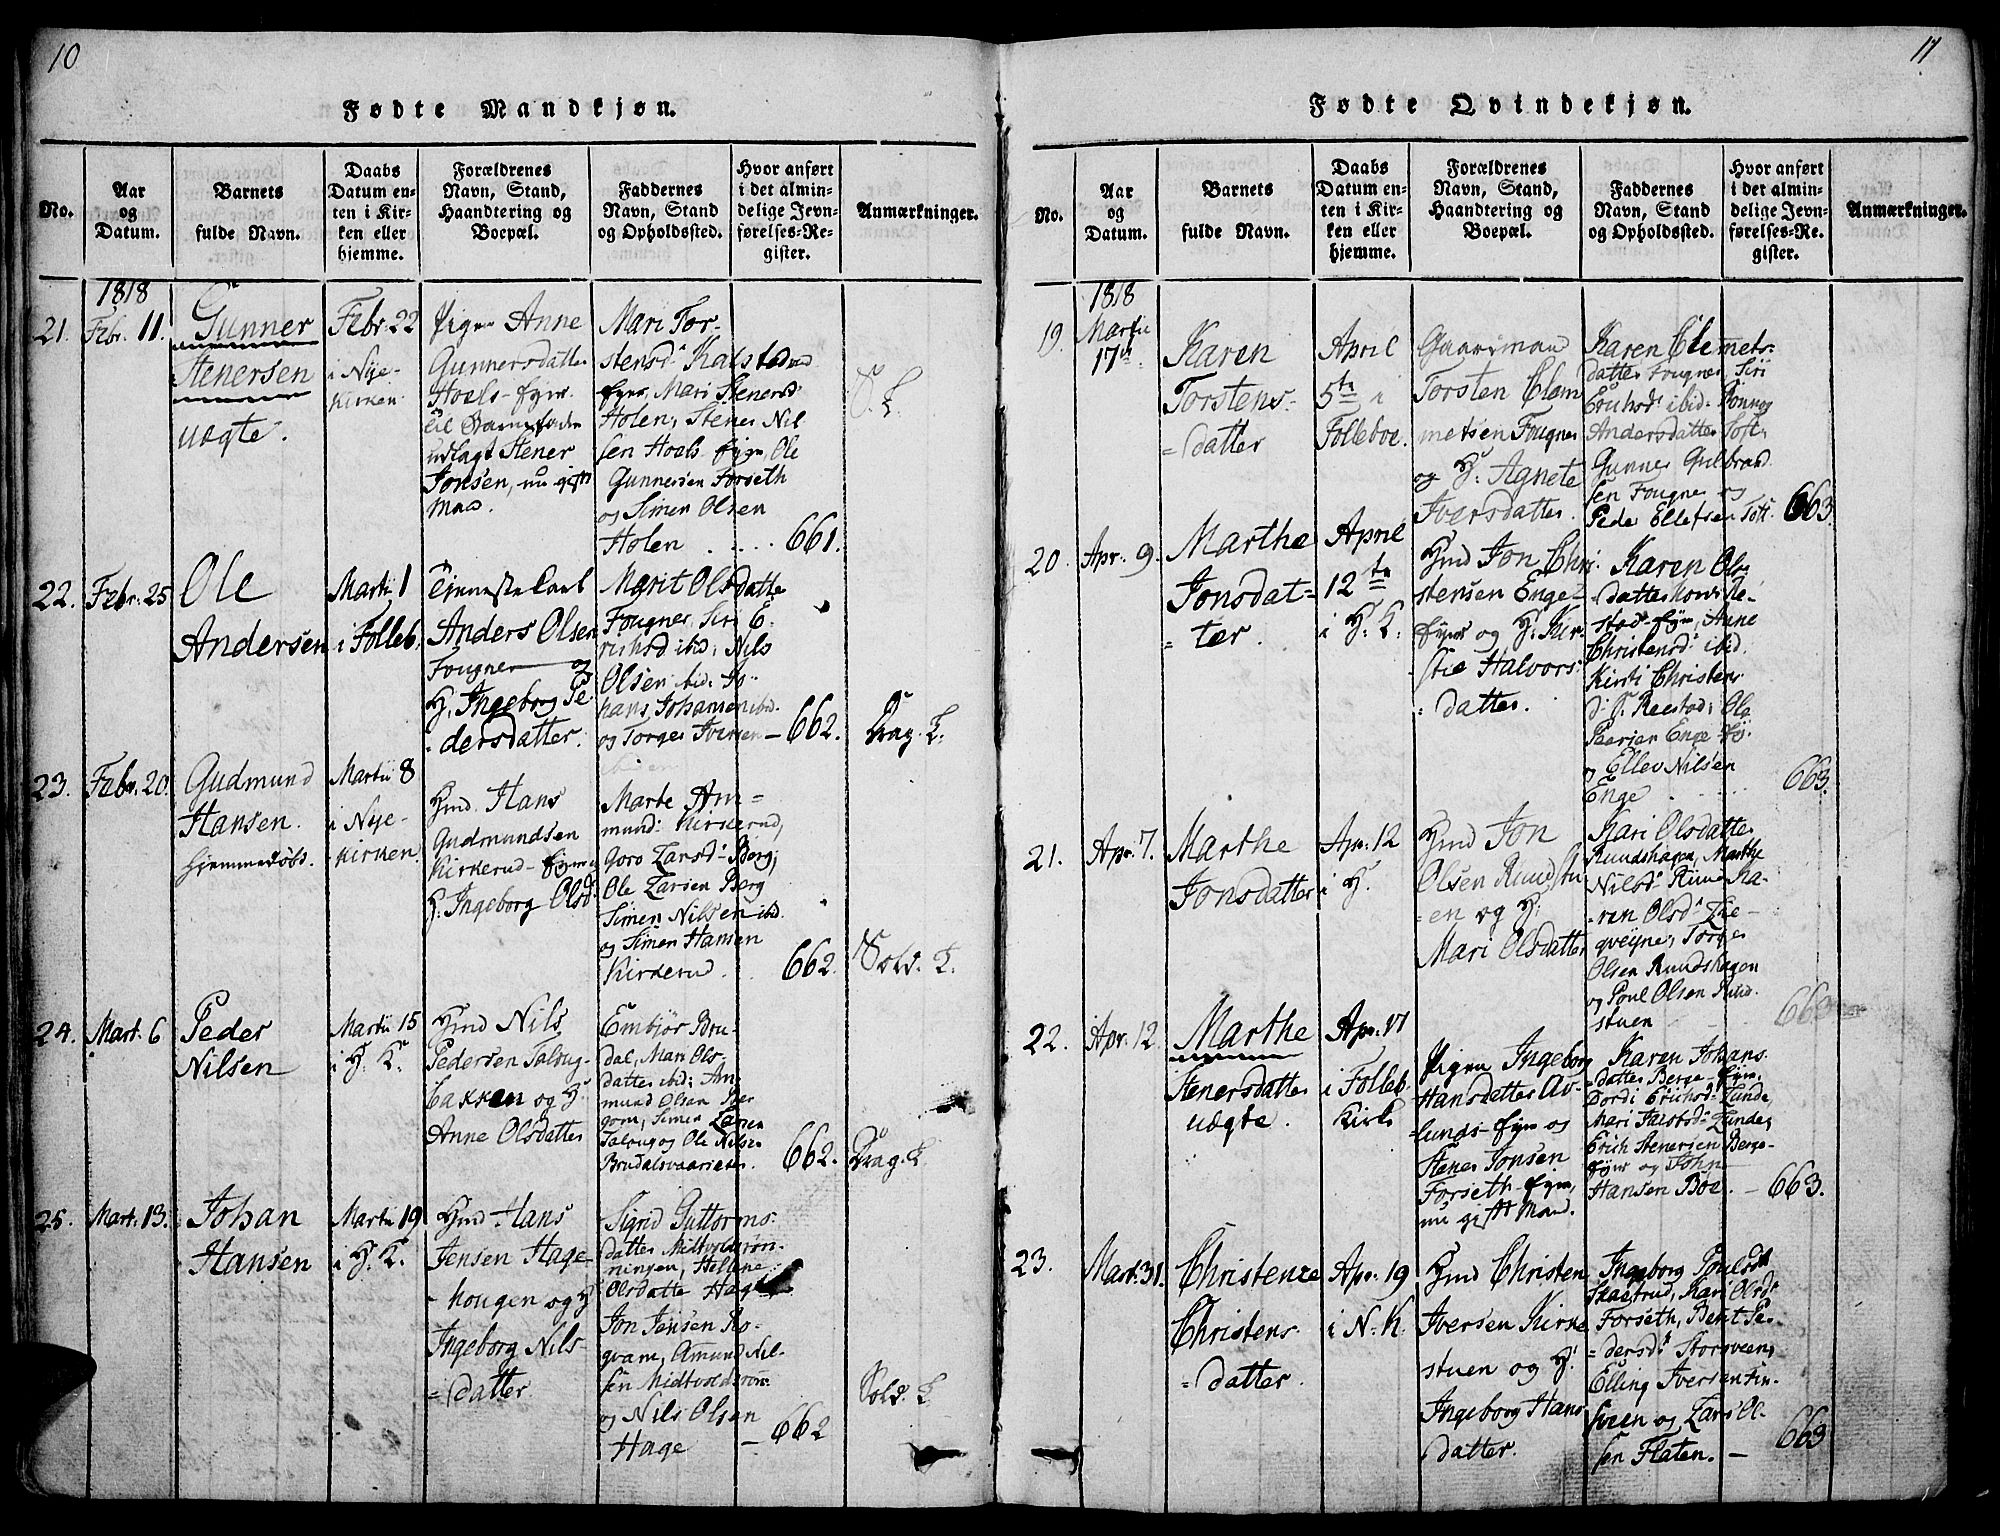 10
Fødte Mandkjøn.
No.
Aar
og
Datum.
Barnets
fulde Navn.
Daabs
Datum en-
ten i Kir-
ken eller
hjemme.
Forældrenes
Navn, Stand,
Haandtering og
Boepæl.
Faddernes
Navn, Stand
og Opholdssted.
Hvor anført
i det almin-
delige Jevn-
førelses-Re-
gister.
Anmærkninger.
1818
21.
Febr. 11.
Gunner
Stenersen
uægte.
Febr. 22
i Nye-
Kirken
Pigen Anne
Gunnersdatter
Hoels-
til Barnefader
udlagt Stener
Jonsen, nu gift
Mand.
Mari Tor-
stensd:
Mari Stenersd
Holen, Stener Nil
sen Hoels
Ole
Gunnersen Forseth
og Simen Olsen
Holen
661.
S. L
22.
Febr. 25
Ole
Andersen
Martii 1
i Folleb.
Tjenestekarl
Anders Olsen
Fougner og
H. Ingeborg Pe
dersdatter.
Marit Olsdatte
Fougner, Siri E.
richsd ibid: Nils
Olsen ibid: Jo-
hans Johansen ibid.
og Torger Iversen
662.
Drag. L.
23.
Febr. 20.
Gudmund
Hansen.
hjemmedøbt.
Martii 8
i Nye-
kirken
Hmd Hans
Gudmundsen
Kirkerud
H: Ingeborg Olsd
Marte Am=
mund: Kirkerud,
Goro Larsd: Berg,
Ole Larsen Berg
Simen Nilsen ibd.
og Simen Hansen
Kirkerud
662.
Sold. L.
24.
Mart. 6
Peder
Nilsen
Martii 15
i H. K.
Hmd Nils
Pedersen
bakken og H:
Anne Olsdatter
Embjør Bru-
dal, Mari Ols-
datter ibid: Am-
mund Olsen
Simen Larsen
og Ole Nilsen
662.
Drag. L.
25.
Mart. 13.
Johan
Hansen
Martii 19
i H. K.
Hmd Hans
Jensen Hage-
hougen og H:
Ingeborg Nils-
=datter
Sigrid Guttorms-
datter Midtvoldsrøn-
ningen, Hellene
Olsdatte Hage
Jon Jensen Ro-
gvam, Amund Nil-
sen Midtvoldsrøn:
og Nils Olsen
Hage
662
Sold. L
11
Fødte Qvindekjøn.
No.
Aar
og
Datum.
Barnets
fulde Navn.
Daabs
Datum en-
ten i Kir-
ken eller
hjemme.
Forældrenes
Navn, Stand,
Haandtering og
Boepæl.
Faddernes
Navn, Stand
og Opholdssted.
Hvor anført
i der almin-
delige Jevn-
førelses-Re-
gister.
Anmærkninger.
1818
19.
Martii
17
Karen
Torstens-
=datter
April
5te i
Folleboe.
Gaardmand
Torsten Clem
metsen Fougner
og H: Agnete
Iversdatter.
Karen Clemets-
datter Fougner, Siri
Erichsd: ibid: Rønnog
Andersdatter Toft,
Gunner Gulbrand
sen Fougner og
Peder Ellefsen Toft.
663.
20.
Apr. 9.
Marthe
Jonsdat=
=ter.
April
12te
i H. K.
Hmd Jon Chri-
stensen Enge-
og H: Kir-
stie Halvors-
datter.
Karen Ols
=datter
Anne
Christensd: ibid.
Kirsti Christens
d:
Ole
Enge
og Ellev Nilsen
Enge
663.
21.
Apr. 7.
Marthe
Jonsdatter
Apr. 12
i H.
Hmd Jon
Olsen Ruudstu
=en og H:
Mari Olsdatter
Mari Olsdatter
Ruudshagen, Marthe
Nilsd: Ruud Ka-
=ren Olsd:
Torger
Olsen Ruudshagen
og Poul Olsen Ruud
stuen
663
22.
Apr. 12.
Marthe
Stenersdatter
uægte.
Apr. 17
i Folleb.
Kirke
Pigen Ingeborg
Hansdatter Av-
lunds- og
Stener Jonsen
Forseth
nu gift Mand.
Karen Johans-
=datter Berge
Dordi Erichsd: Lunde,
Mari Jacobsd: Lunde,
Erich Stenersen Berge-
og John
Hansen Boe
663.
23.
Mart. 31.
Christenze
Christens-
=datter.
Apr. 19
i N. K.
Hmd Christen
Iversen Kirke
stuen og H:
Ingeborg Hans
datter.
Ingeborg Poulsd
Skaeerud, Kari Olsd:
Forseth, Berit Pe-
=dersd: Storsveen,
Elling Iversen Fin-
sveen og Lars Ol-
sen Flaten.
663